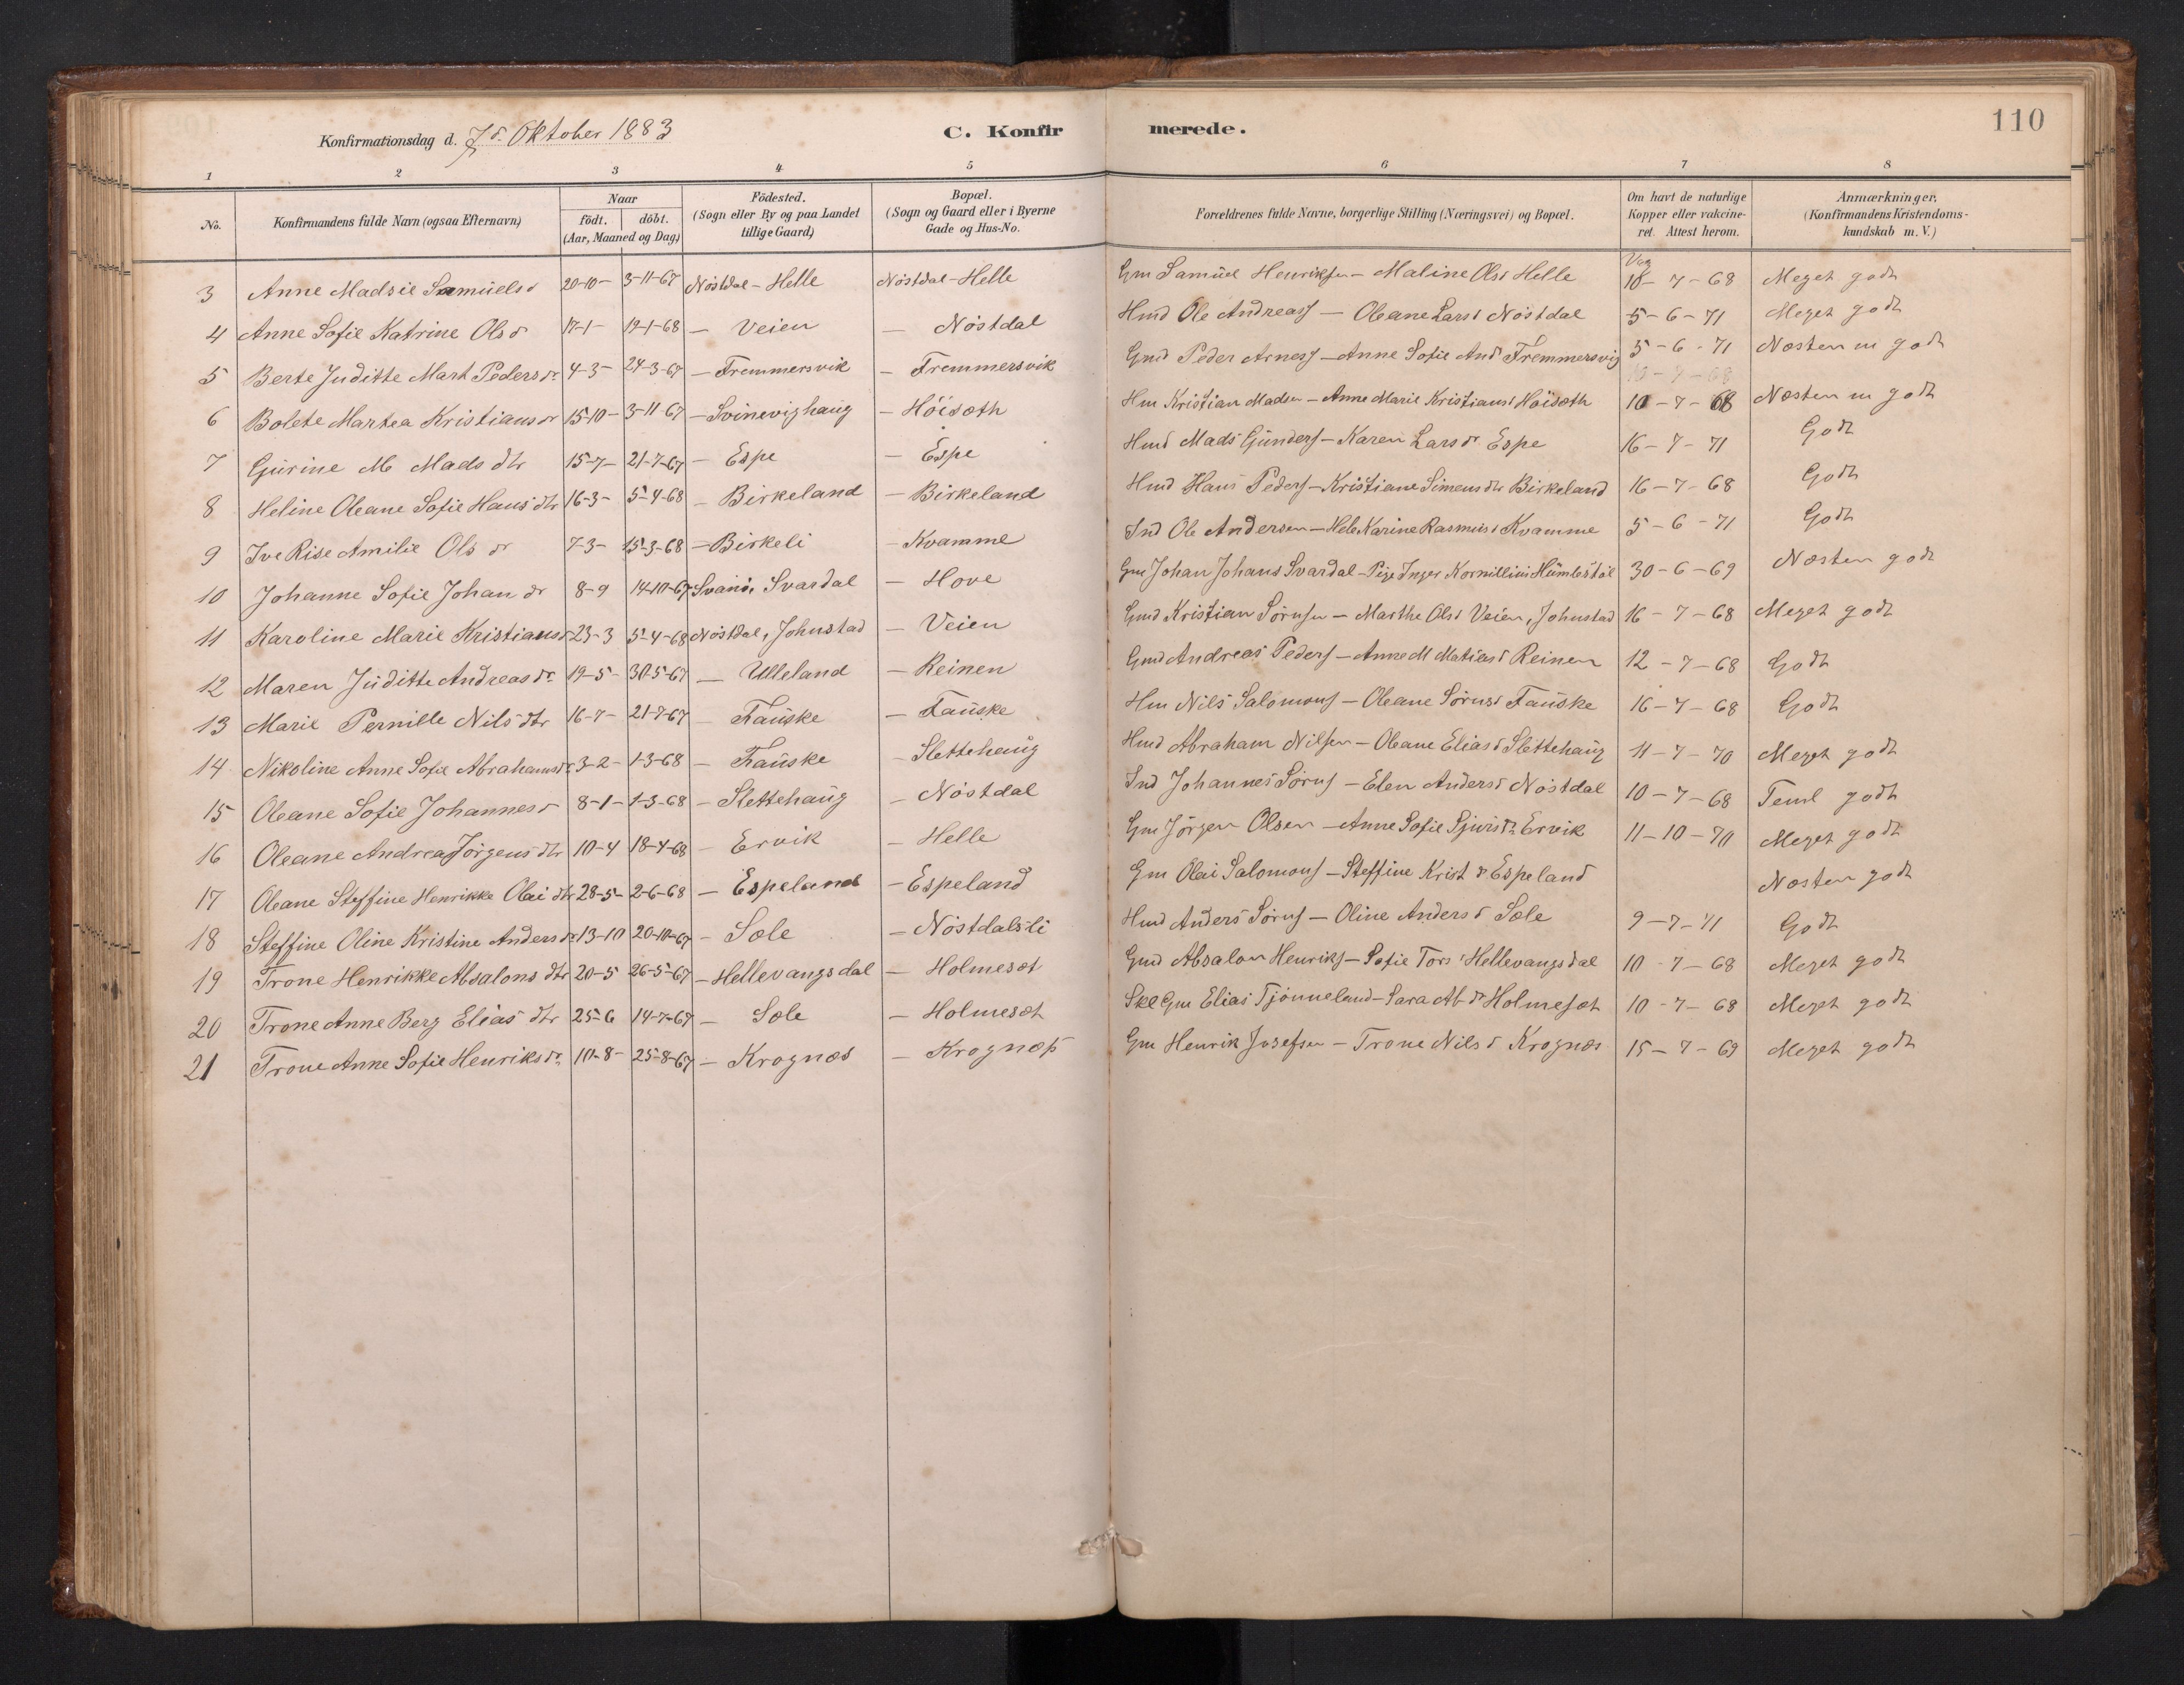 110
Konfirmationsdag d. 7de Oktober 1883 C. Konfirmerede.
1 2 3 4 5 6 7 8
No. Konfirmandens fulde Navn (ogsaa Efternavn) Naar födt. döbt. (Aar, Maaned og Dag) Födested. (Sogn eller By og paa Landet tillige Gaard) Bopæl. (Sogn og Gaard eller i Byerne Gade og Hus-No. Forældrenes fulde Navne, borgerlige Stilling (Næringsvei) og Bopæl. Om havt de naturlige Kopper eller vakcineret. Attest herom. Anmærkninger. (Konfirmandens Kristendomskundskab m. V.)
3 Anne Madsie Samüelsd 20-10- 3-11-67 Nöstdal - Helle Nöstdal - Helle Gm Samüel Henriksen - Maline Olsd Helle Vac 10-7-68 Meget godt
4 Anne Sofie Katrine Olsd 17-1- 19-1-68 - Veien - Nöstdal Hmd Ole Andreass - Oleane Larsd Nöstdal 5-6-71 Meget godt
5 Berte Juditte Mart Pedersdr 4-3- 24-3-67 - Fremmersvik - Fremmersvik Gmd Peder Arness - Anne Sofie Andd Fremmersvig 5-6-71 Næsten m godt
6 Bolete Martea Kristiansdr 15-10- 3-11-67 - Svinevighaüg - Höisæth Hm Kristian Madsen - Anne Marie Kristiansd Höisæth 10-7-68 Næsten m godt
7 Gürine M Madsdtr 15-7- 21-7-67 - Espe - Espe Hmd Mads Günders - Karen Larsdr Espe 16-7-71 Godt
8 Heline Oleane Sofie Hansdtr 16-3- 5-4-68 - Birkeland - Birkeland Hmd Hans Peders - Kristiane Simensdtr Birkeland 16-7-68 Godt
9 Ive Rise Amilie Olsdr 7-3- 15-3-68 - Birkeli - Kvamme Ind Ole Andersen - Hele Karine Rasmusd Kvamme 5-6-71 Godt
10 Johanne Sofie Johandr 8-9 14-10-67 Svanö, Svardal - Hove Gm Johan Johans Svardal - Pige Inger Kornilliüs Hümlestöl 30-6-69 Næsten godt
11 Karoline Marie Kristiansd 23-3 5-4-68 Nöstdal, Johnstad - Veien Gmd Kristian Sörnsen - Marthe Olsd Veien, Johnstad 16-7-68 Meget godt
12 Maren Jüditte Andreasdr 19-5- 30-5-67 - Ulleland - Reinen Gmd Andreas Peders - Anne M Matiasd Reinen 12-7-68 Godt
13 Marie Pernille Nilsdtr 16-7- 21-7-67 - Faüske - Faüske Hm Nils Salomons - Oleane Sörnsd Faüske 16-7-68 Godt
14 Nikoline Anne Sofie Abrahamsdr 3-2- 1-3-68 - Faüske - Slettehaüg Hmd Abraham Nilsen - Oleane Eliasd Slettehaüg 11-7-70 Meget godt
15 Oleane Sofie Johannesd 8-1- 1-3-68 - Slettehaüg - Nöstdal Ind Johannes Sörns - Elen Andersd Nöstdal 10-7-68 Teml godt
16 Oleane Andrea Jörgensdtr 10-4 18-4-68 - Ervik - Helle Gm Jörgen Olsen - Anne Sofie Sjursdr Ervik 11-10-70 Meget godt
17 Oleane Steffine Henrikke Olaidtr 28-5- 2-6-68 - Espeland - Espeland Gm Olai Salomons - Steffine Kristd Espeland Næsten godt
18 Steffine Oline Kristine Andersdr 13-10 20-10-67 - Sæle - Nöstdalsli Hmd Anders Sörns - Oline Andersd Sæle 9-7-71 Godt
19 Trone Henrikke Absalonsdtr 20-5 26-5-67 - Hellevangsdal - Holmesæt Gmd Absalon Henriks - Sofie Torsd Hellevangsdal 10-7-68 Meget godt
20 Trone Anne Berg Eliasdtr 25-6 14-7-67 - Sæle - Holmesæt Ske Gm Elias Tjönneland - Sara Abdr Holmesæt 10-7-68 Meget godt
21 Trone Anne Sofie Henriksdr 10-8- 25-8-67 - Krognæs - Krognæs Gm Henrik Josefsen - Trone Nilsd Krognæs 15-7-69 Meget godt